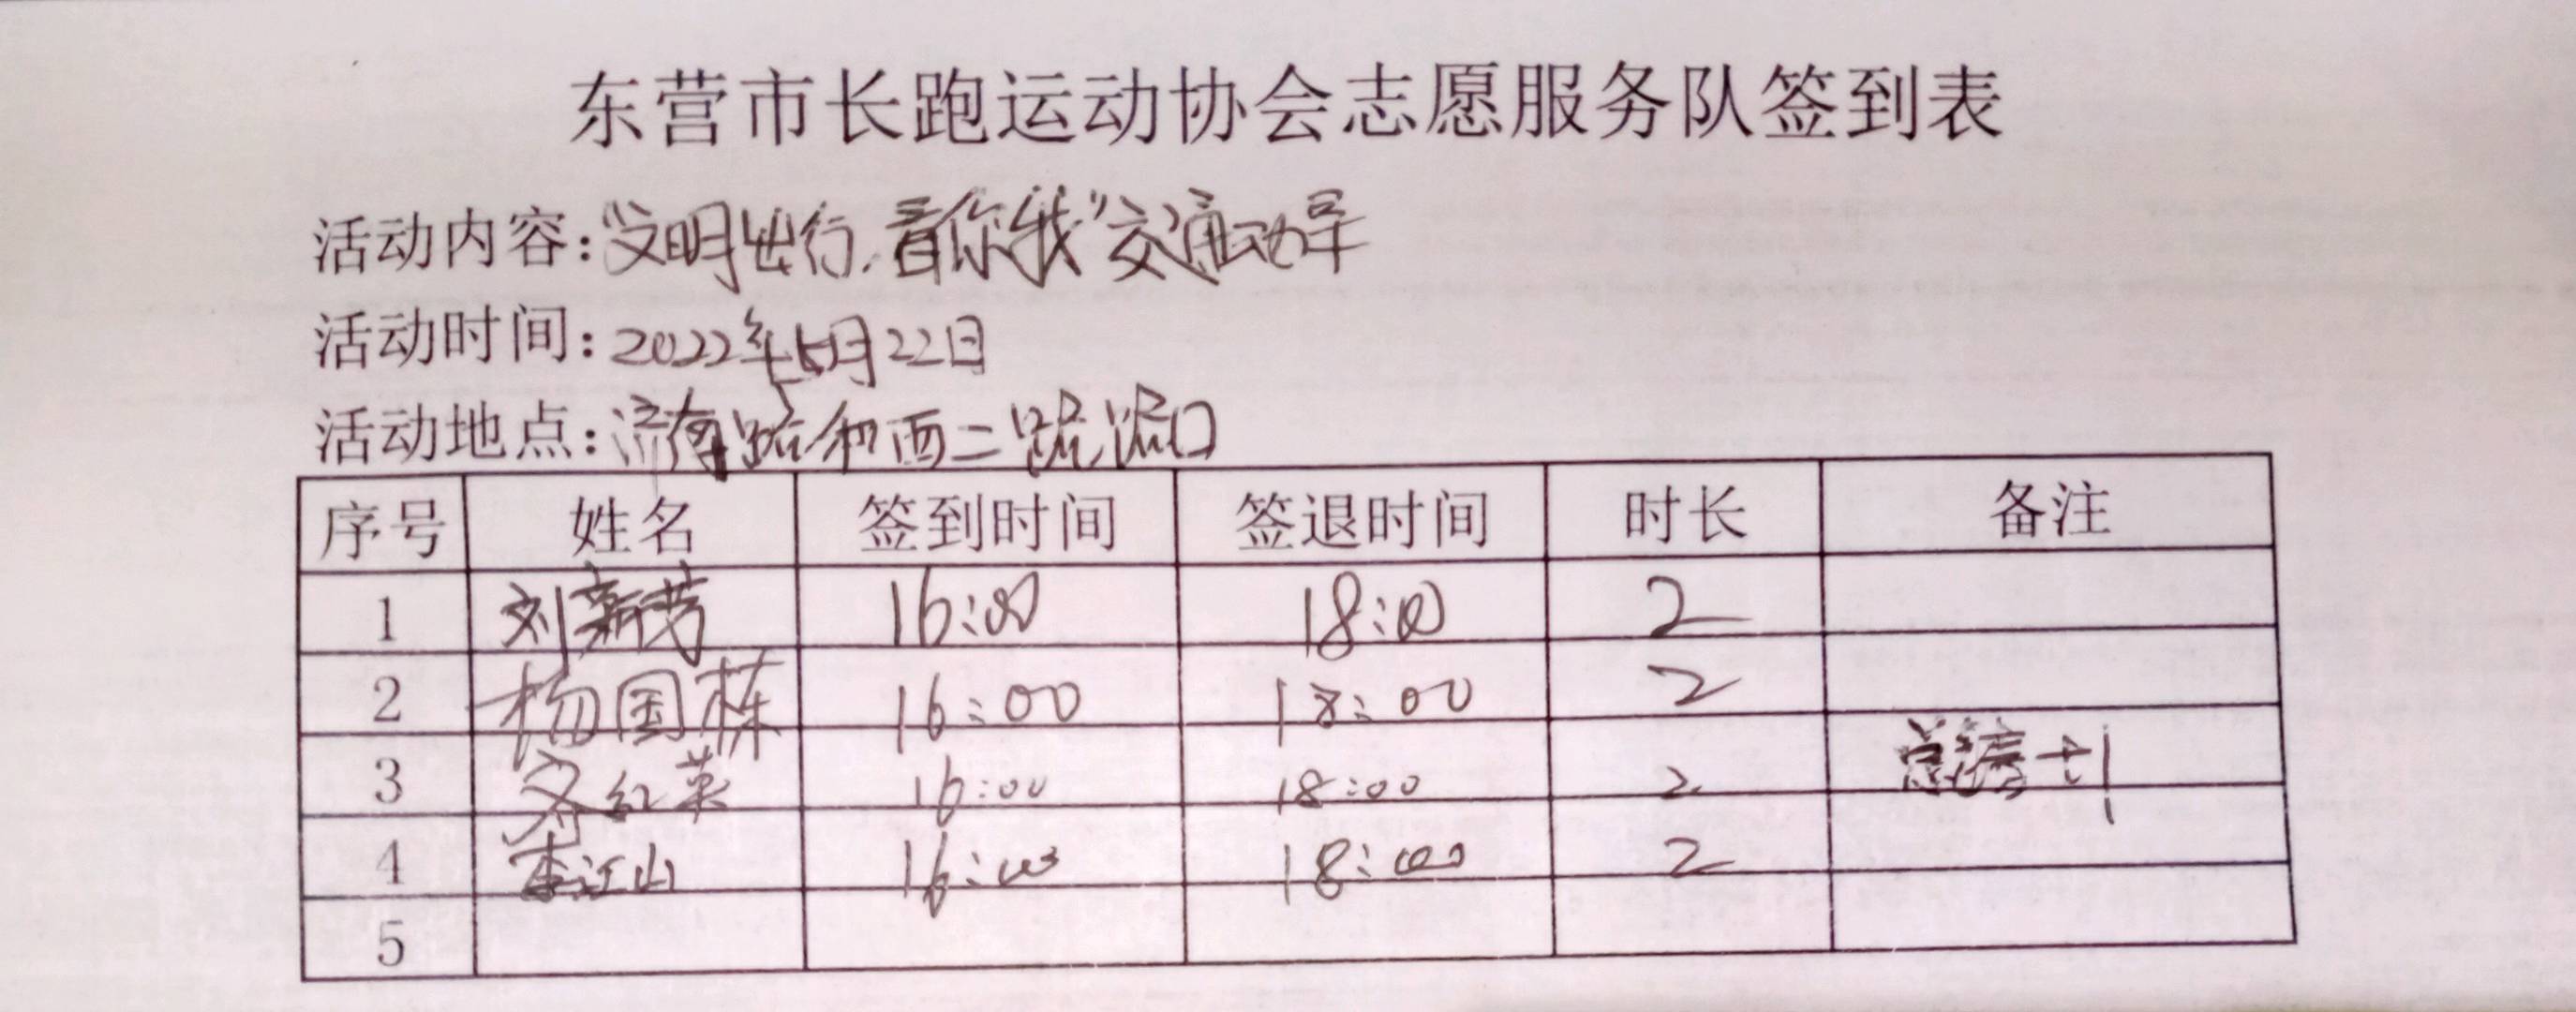 东营市长跑运动协会志愿服务队签到表
活动内容:"文明出行,看你我"交通劝导
活动时间:2022年5月22日
活动地点:济南路和西二路路口
序号 姓名 签到时间 签退时间 时长 备注
1 刘新芳 16:00 18:00 2
2 杨国栋 16:00 18:00 2
3 红英 16:00 18:00 2
4 李江山 16:00 18:00 2
5